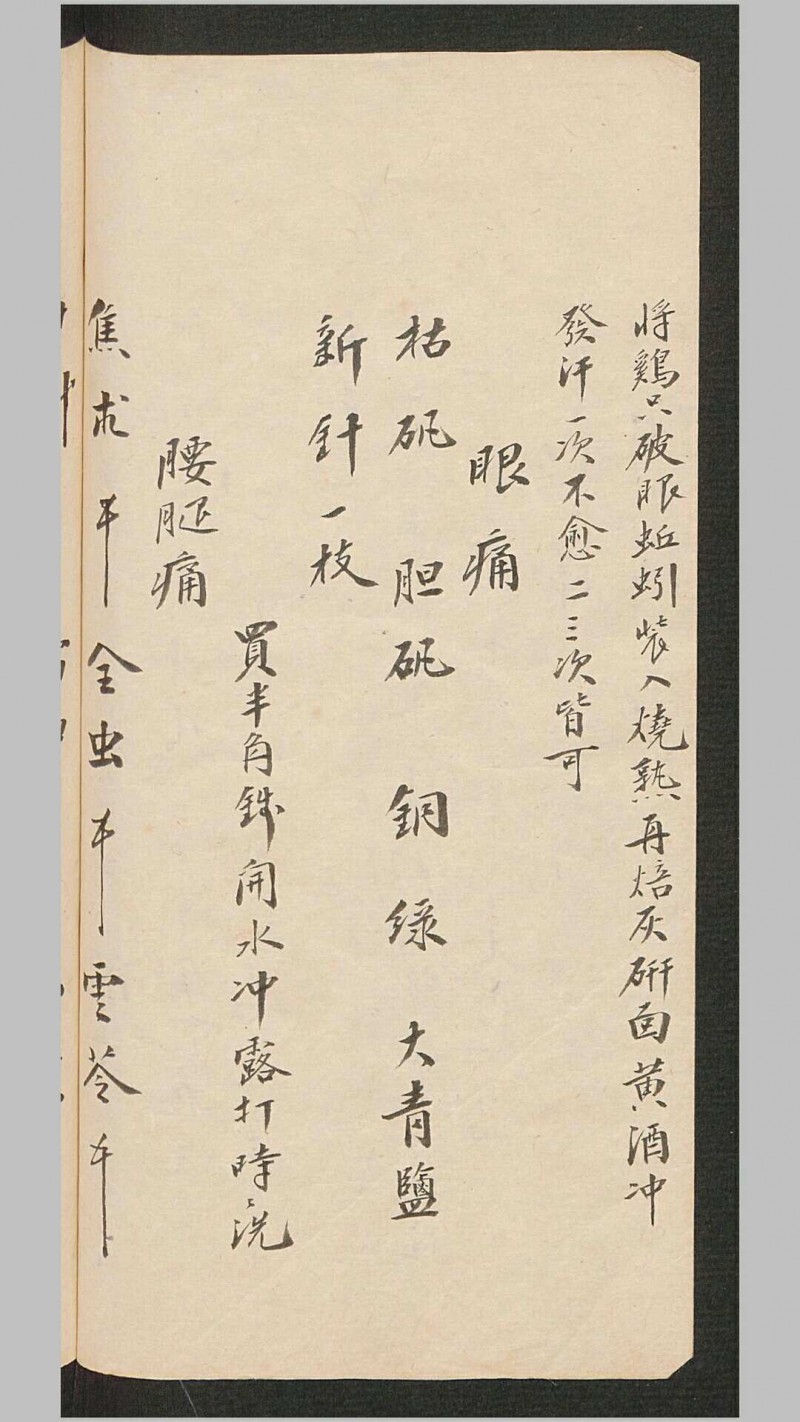 將鷄只破眼蚯蚓裝入燒熟再焙灰研面黄酒冲
發汗一次不愈二三次皆可
眼痛
枯矾 胆矾 銅绿 大青鹽
新針一枝
買半角錢開水冲露打時〻洗
腰腿痛
焦朮 全虫 雲苓